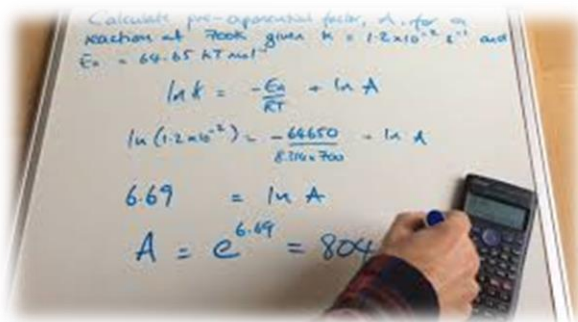 Calculate pre-exponential factor, A, for a
reaction at 700K given k = 1.2x10⁻² s⁻¹ and
Ea = 64.65 kJ mol⁻¹
ln k = -Ea/RT + ln A
ln (1.2x10⁻²) = -64650/8.314x700 + ln A
6.69 = ln A
A = e^6.69 = 804